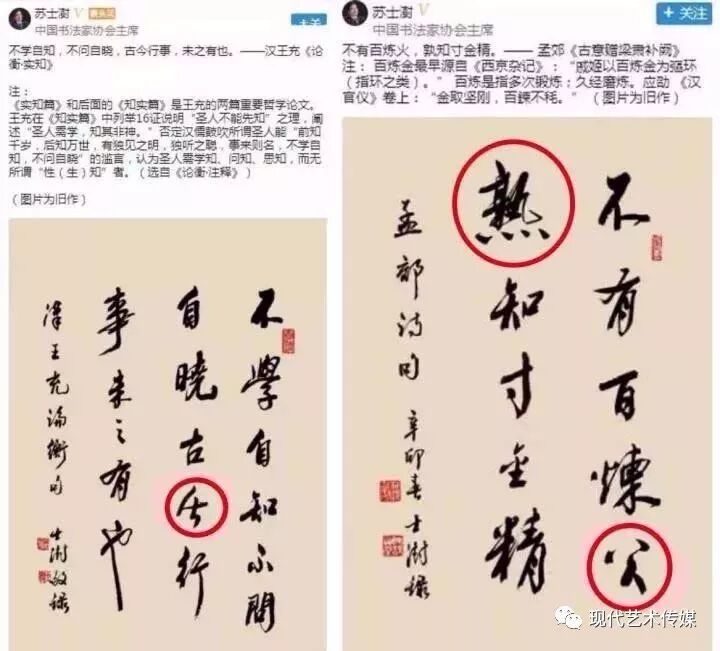 苏士澍 V
中国书法家协会主席
不学自知，不问自晓，古今行事，未之有也。——汉王充《论
衡·实知》
注：
《实知篇》和后面的《知实篇》是王充的两篇重要哲学论文。
王充在《知实篇》中列举16证说明“圣人不能先知”之理，阐
述“圣人需学，知其非神。”否定汉儒鼓吹所谓圣人能“前知
千岁，后知万世，有独见之明，独听之聪，事来则名，不学自
知，不问自晓”的滥言，认为圣人需学知、问知、思知，而无
所谓“性（生）知”者。（选自《论衡·注释》）
（图片为旧作）
不學自知不問
自曉古今行
事未之有也
漢王充論衡句 士澍敬錄
苏士澍 V
中国书法家协会主席
+ 关注
不有百炼火，孰知寸金精。—— 孟郊《古意赠梁肃补阙》
注： 百炼金最早源自《西京杂记》：“戚姬以百炼金为彄环
（指环之类）。” 百炼是指多次锻炼；久经磨炼。应劭 《汉
官仪》卷上：“金取坚刚，百鍊不耗。”（图片为旧作）
不有百煉公
熟知寸金精
孟郊詩句 辛卯春 士澍錄
现代艺术传媒